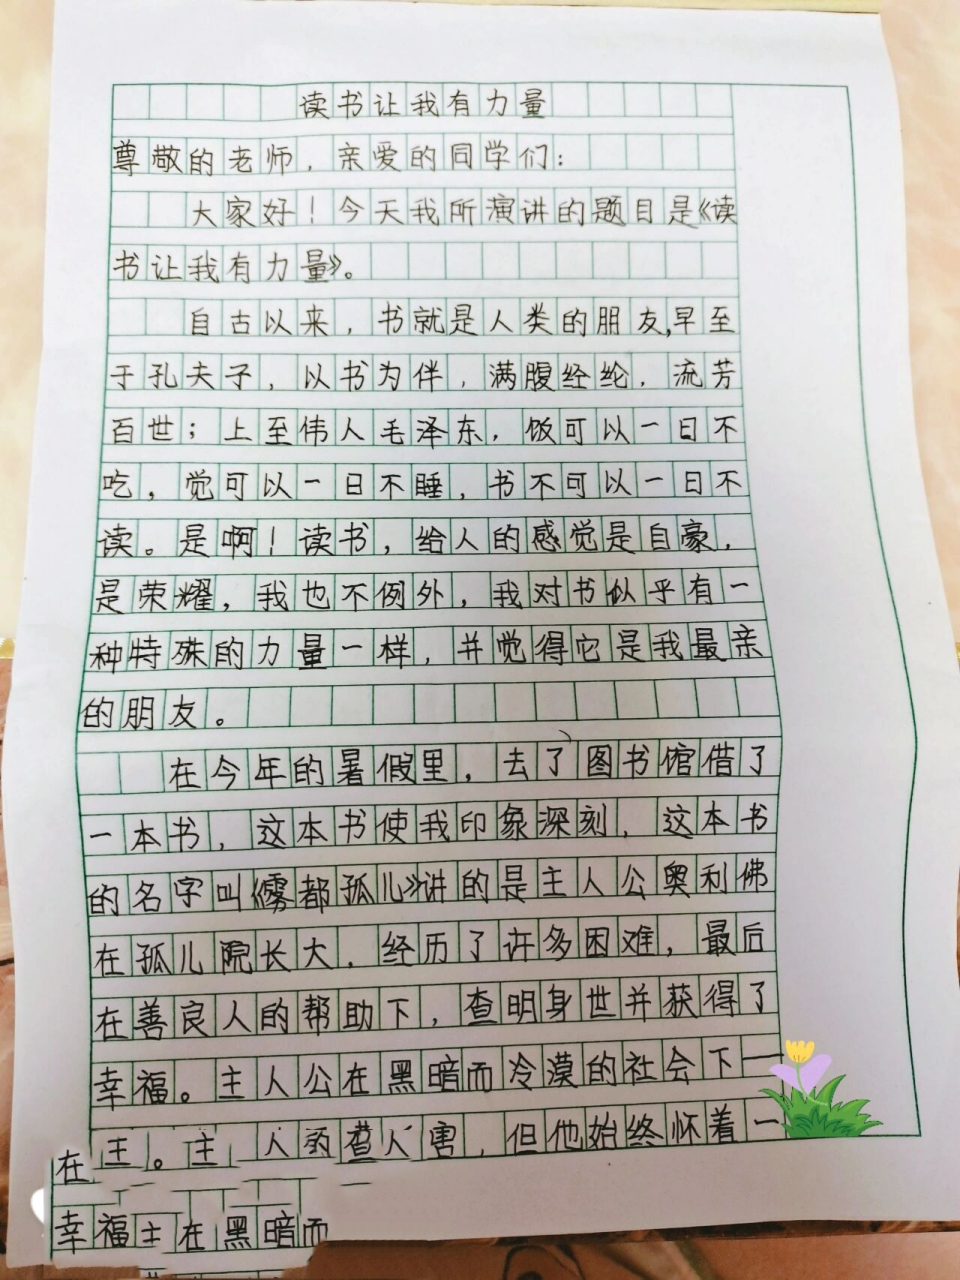 读书让我有力量
尊敬的老师，亲爱的同学们：
大家好！今天我所演讲的题目是《读
书让我有力量》。
自古以来，书就是人类的朋友,早至
于孔夫子，以书为伴，满腹经纶，流芳
百世；上至伟人毛泽东，饭可以一日不
吃，觉可以一日不睡，书不可以一日不
读。是啊！读书，给人的感觉是自豪，
是荣耀，我也不例外，我对书似乎有一
种特殊的力量一样，并觉得它是我最亲
的朋友。
在今年的暑假里，去了图书馆借了
一本书，这本书使我印象深刻，这本书
的名字叫《雾都孤儿》讲的是主人公奥利佛
在孤儿院长大，经历了许多困难，最后
在善良人的帮助下，查明身世并获得了
幸福。主人公在黑暗而冷漠的社会下一
在主。主人查人害，但他始终怀着一
幸福主在黑暗而